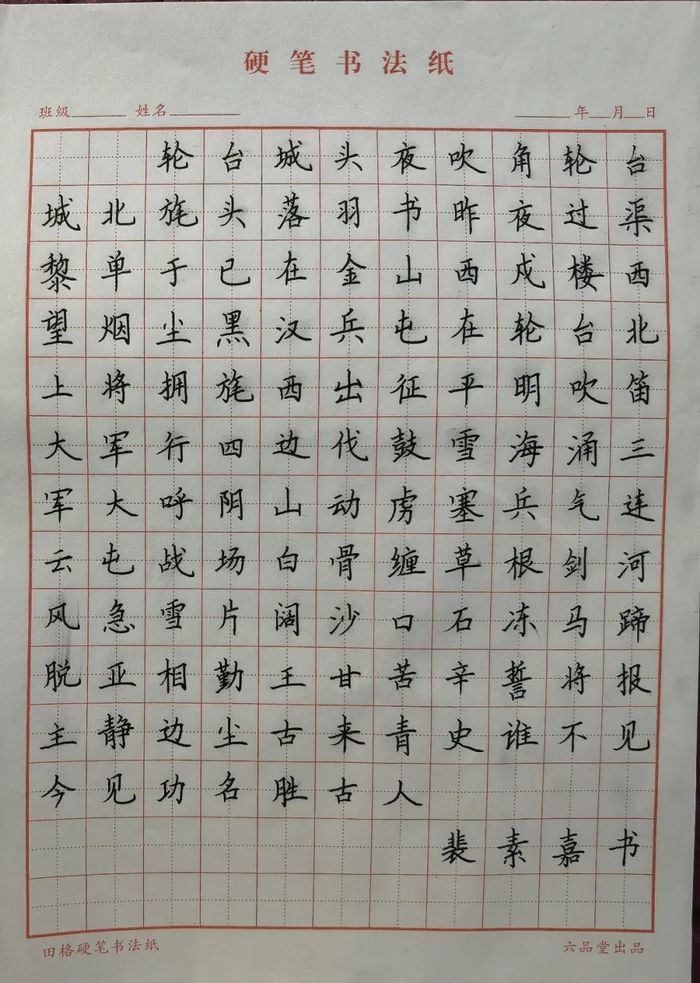 硬笔书法纸
班级 姓名 年 月 日
轮台城头夜吹角轮台
城北旄头落羽书昨夜过渠
黎单于已在金山西戍楼西
望烟尘黑汉兵屯在轮台北
上将拥旄西出征平明吹笛
大军行四边伐鼓雪海涌三
军大呼阴山动虏塞兵气连
云屯战场白骨缠草根剑河
风急雪片阔沙口石冻马蹄
脱亚相勤王甘苦辛誓将报
主静边尘古来青史谁不见
今见功名胜古人
裴素嘉书
田格硬笔书法纸 六品堂出品